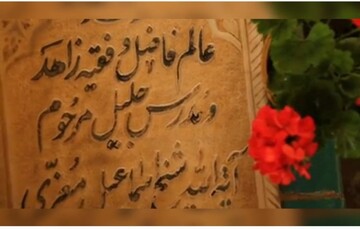 عالم فاضل و فقیه زاهد
و مدرس جلیل مرحوم
آیة الله شیخ اسماعیل معزّی